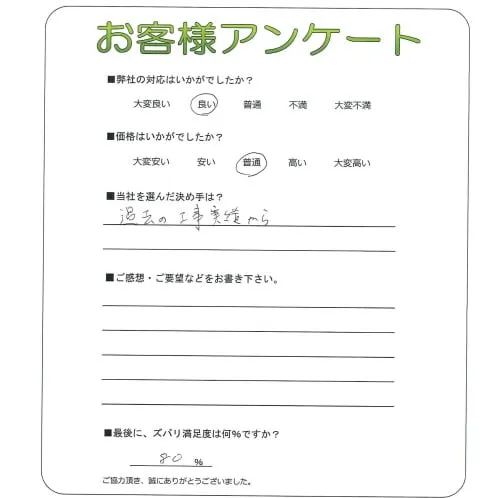 お客様アンケート
■弊社の対応はいかがでしたか？
大変良い 良い 普通 不満 大変不満
■価格はいかがでしたか？
大変安い 安い 普通 高い 大変高い
■当社を選んだ決め手は？
過去の工事実績から
■ご感想・ご要望などをお書き下さい。
■最後に、ズバリ満足度は何％ですか？
80 %
ご協力頂き、誠にありがとうございました。